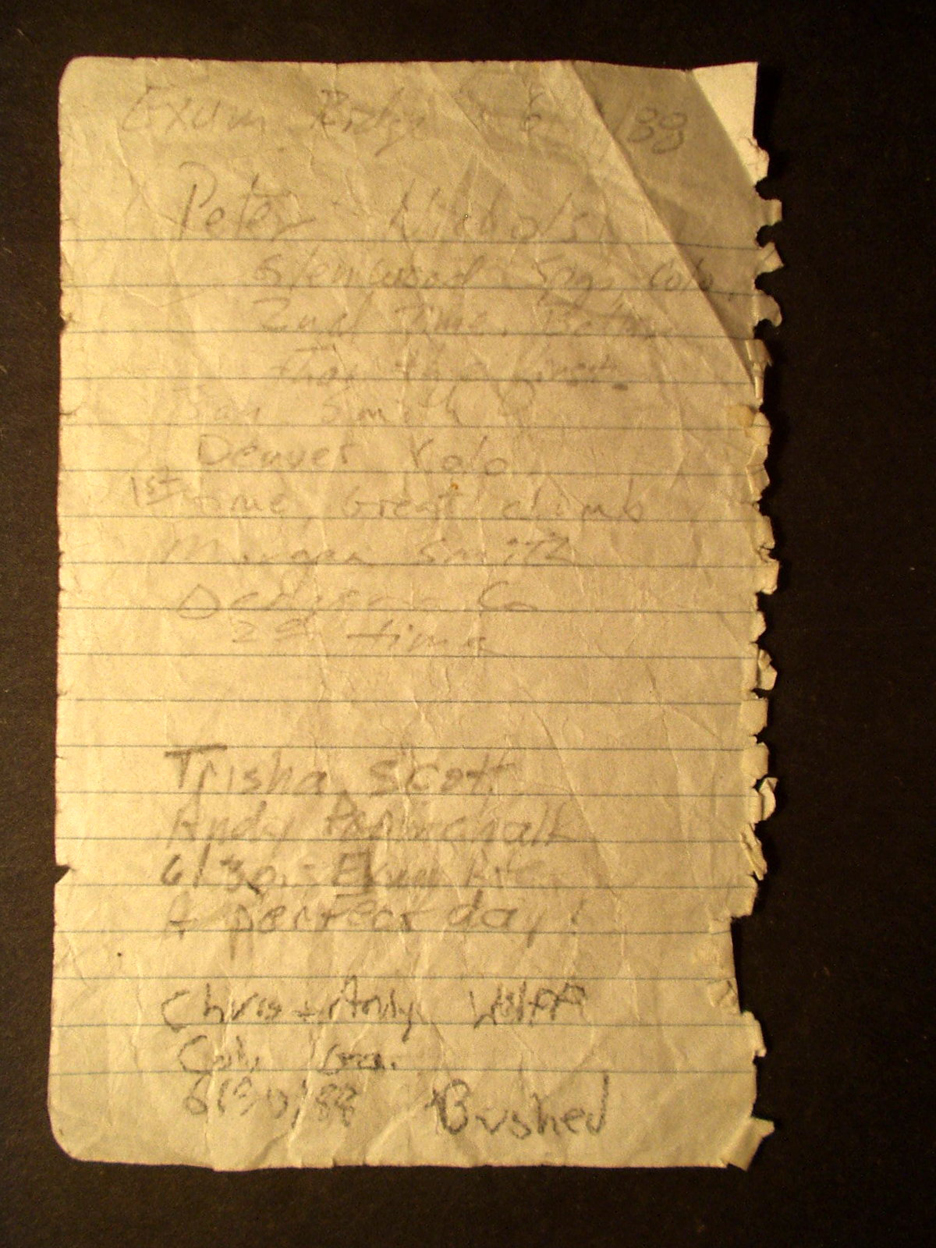 Exum Ridge 6 /88
Peter Nichols
Glenwood Spgs Colo.
2nd Time. Better
than the first.
Dan Smith
Denver Colo.
1st time, Great climb
Morgan Smith
Co
2d time
Trisha Scott
Andy
6/30 - Exum Rte.
A perfect day!
Chris + Andy
6/30/88 Bushed